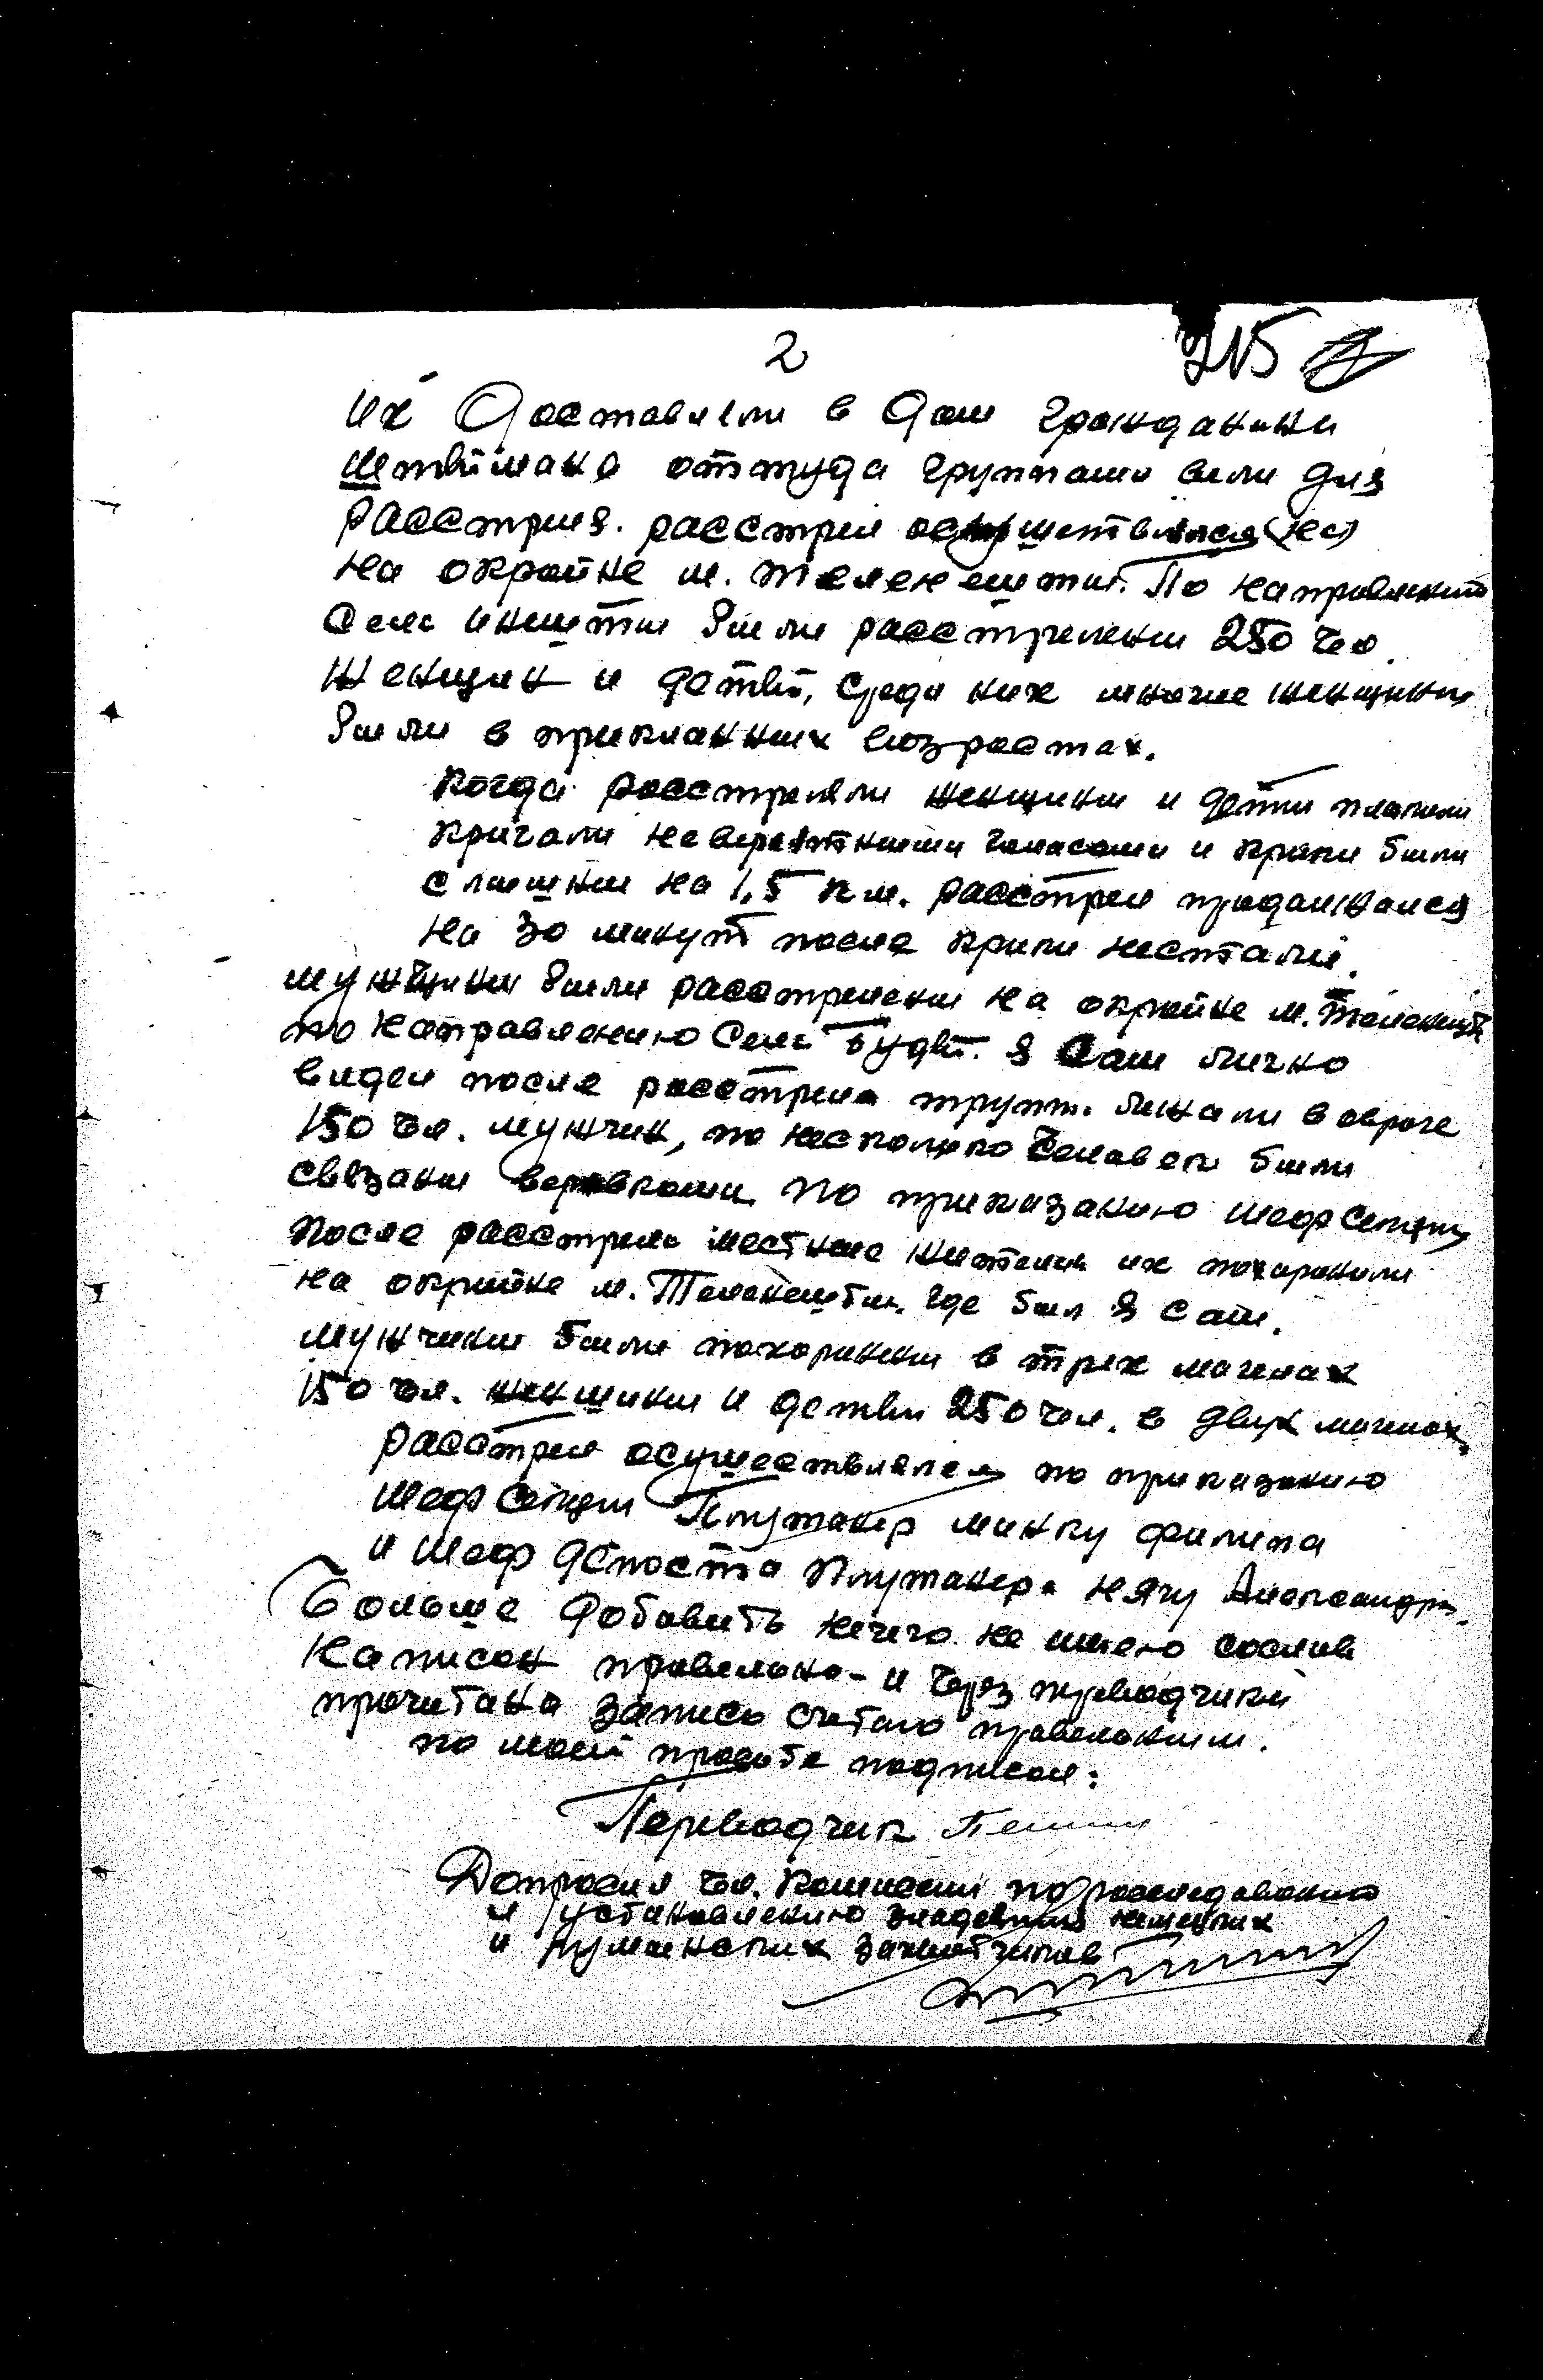 2
215
их доставили в дом гражданина
Штейман оттуда групами вели для
расстрела. расстрел осуществлялся
на окрайне м. Теленешты. По направлению
села Инешты были расстрелены 250 чел.
женщин и детей, среди них многие женщины
были в преклонных возрастах.
когда расстреляли женщины и дети плакали
кричали невероятными голасами и крики были
слышны на 1,5 км. расстрел продолжался
на 30 минут после крики нестали.
мужчины были расстрелены на окрайне м. Теленешты
по направлению села Будей. я сам лично
видел после расстрела трупы. лежали в овраге
150 чел. мужчин, по несколько человек были
связаны веровками по приказанию шеф Секции
После расстрела местные жители их похоранили
на окрайне м. Теленешты. где был я сам.
мужчины были похоранены в трех могилах
150 чел. женщины и детей 250 чел. в двух могилах.
расстрел осуществлялся по приказанию
шеф Секции Плутанер Минку Филипа
и шеф де поста Плутанера Нягу Александра.
Больше добавить нечего не имею сослов
написан правельно и через переводчика
прочитана запись считаю правельным.
по моей просьбе подписал:
Переводчик
Допросил чл. Комиссии по расследованию
и установлению злодеяний немецких
и румынских захватчиков